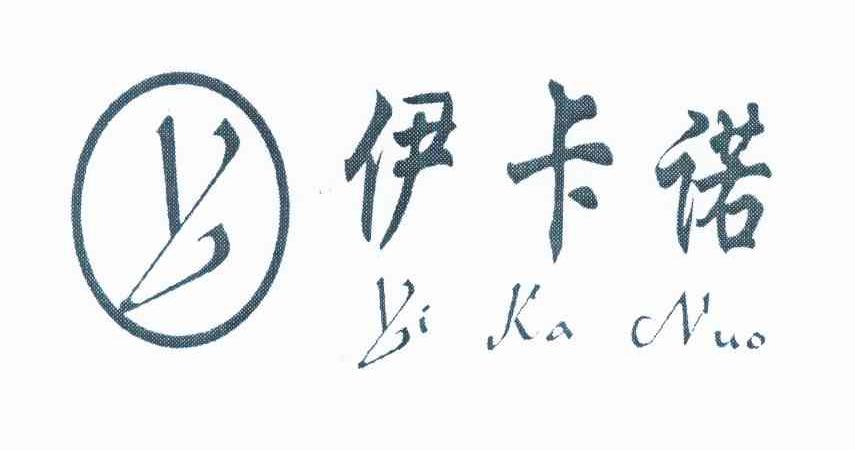 Y
伊卡诺
Yi Ka Nuo